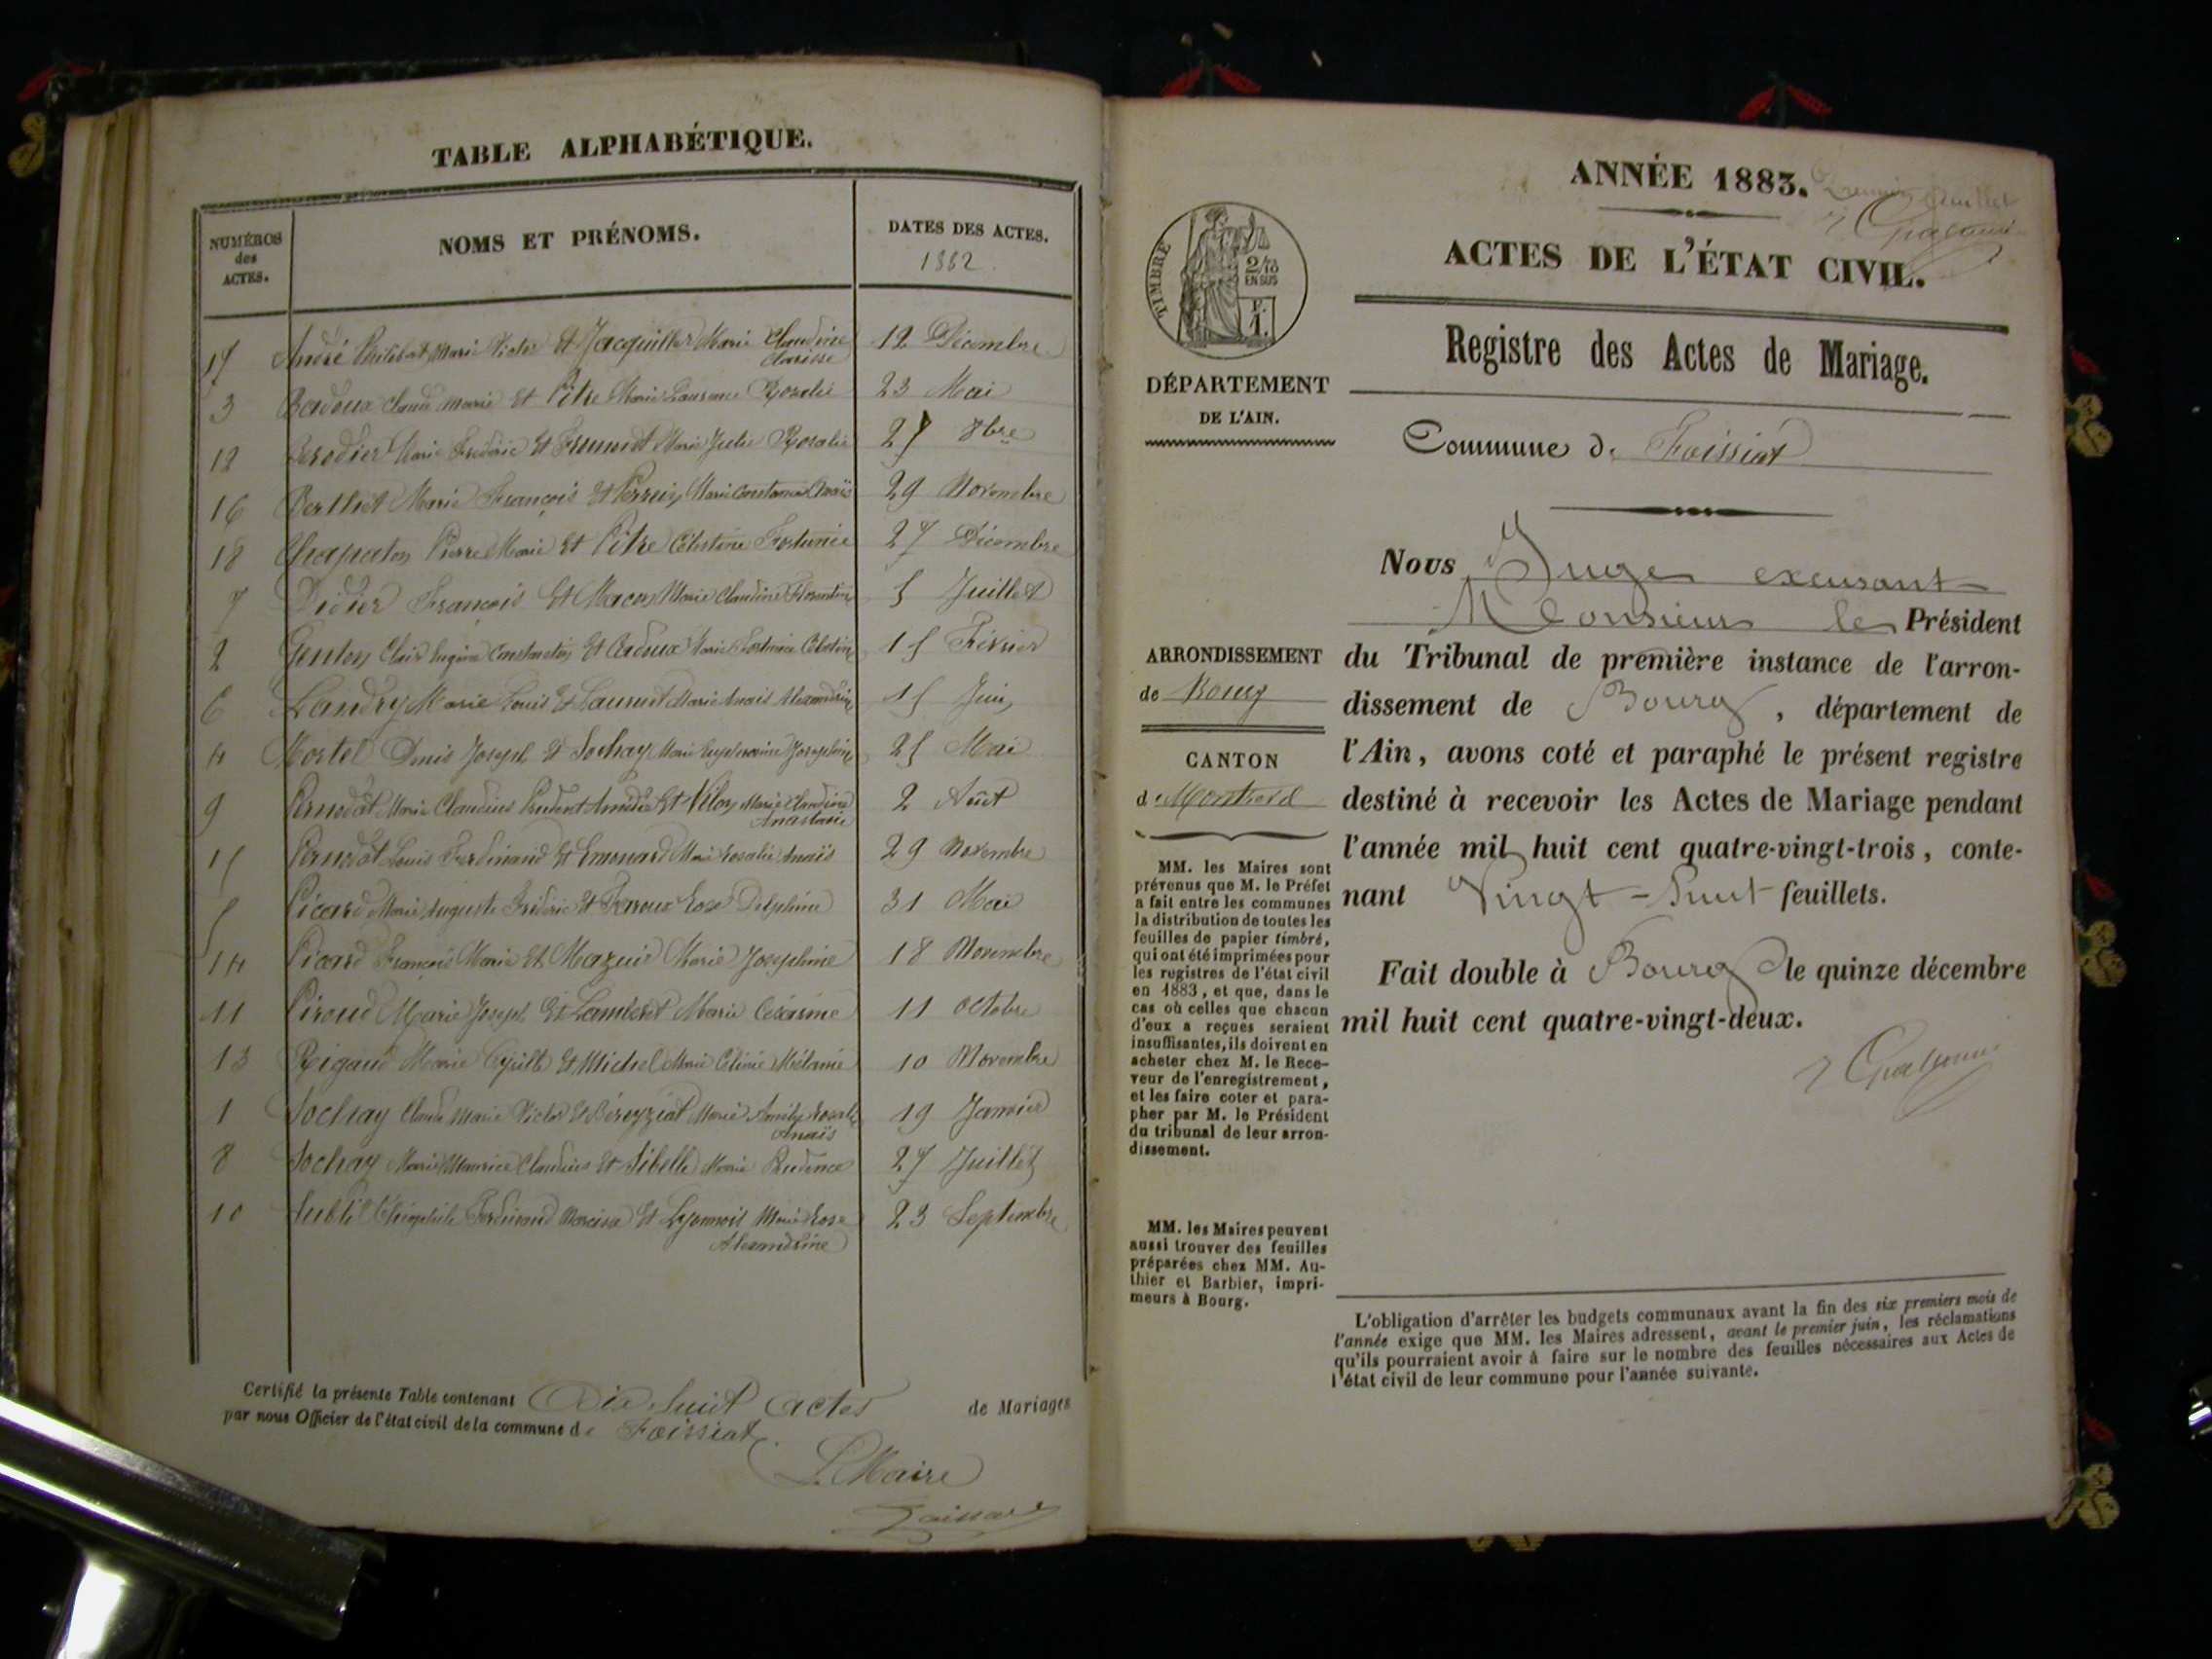 TABLE ALPHABÉTIQUE.
NUMÉROS
des
ACTES.
NOMS ET PRÉNOMS.
DATES DES ACTES.
1882.
17 André Philibert Marie Victor Et Jacquiller Marie Claudine 12 Décembre
Clarisse
3 Claude Marie Et Pitre Marie Laurence Rosalie 23 Mai
12 Marie Frédéric Et Marie Julie Rosalie 27 8bre
16 Berthet Marie François Et Perrin Marie Constance Anaïs 29 Novembre
18 Chapaton Pierre Marie Et Pitre Célestine Fortunée 27 Décembre
7 Didier François Et Macon Marie Claudine Florentine 5 Juillet
2 Genton Clair Eugène Constantin Et Marie Fortunée Célestine 15 Février
6 Landry Marie Louis Et Laurent Marie Anaïs Alexandrine 15 Juin
4 Mortel Denis Joseph Et Sochay Marie Euphrosine Joséphine 25 Mai
9 Marie Claudius Prudent Amédée Et Vélon Marie Claudine 2 Août
Anastasie
15 Louis Ferdinand Et Emonard Marie Rosalie Anaïs 29 Novembre
5 Picard Marie Auguste Frédéric Et Rose Delphine 31 Mai
14 Picard François Marie Et Mazuir Marie Joséphine 18 Novembre
11 Piroud Marie Joseph Et Lambert Marie Césarine 11 Octobre
13 Rigaud Marie Et Michel Marie Mélanie 10 Novembre
1 Sochay Claude Marie Victor Et Béreyziat Marie 19 Janvier
Anaïs
8 Sochay Marie Maurice Claudius Et Sibelle Marie Prudence 27 Juillet
10 Théophile Ferdinand Narcisse Et Lyonnois Marie Rose 23 Septembre
Alexandrine
Certifié la présente Table contenant Dix huit actes de Mariages
par nous Officier de l'état civil de la commune de Foissiat.
Le Maire
ANNÉE 1883.
Premier feuillet
ACTES DE L'ÉTAT CIVIL.
TIMBRE
2/10
EN SUS
F.
1.
DÉPARTEMENT
DE L'AIN.
Registre des Actes de Mariage.
Commune de Foissiat
Nous Juge excusant
Monsieur le Président
du Tribunal de première instance de l'arron-
dissement de Bourg, département de
l'Ain, avons coté et paraphé le présent registre
destiné à recevoir les Actes de Mariage pendant
l'année mil huit cent quatre-vingt-trois, conte-
nant Vingt-huit feuillets.
Fait double à Bourg le quinze décembre
mil huit cent quatre-vingt-deux.
ARRONDISSEMENT
de Bourg
CANTON
de Montrevel
MM. les Maires sont
prévenus que M. le Préfet
a fait entre les communes
la distribution de toutes les
feuilles de papier timbré,
qui ont été imprimées pour
les registres de l'état civil
en 1883, et que, dans le
cas où celles que chacun
d'eux a reçues seraient
insuffisantes, ils doivent en
acheter chez M. le Rece-
veur de l'enregistrement,
et les faire coter et para-
pher par M. le Président
du tribunal de leur arron-
dissement.
MM. les Maires peuvent
aussi trouver des feuilles
préparées chez MM. Au-
thier et Barbier, impri-
meurs à Bourg.
L'obligation d'arrêter les budgets communaux avant la fin des six premiers mois de
l'année exige que MM. les Maires adressent, avant le premier juin, les réclamations
qu'ils pourraient avoir à faire sur le nombre des feuilles nécessaires aux Actes de
l'état civil de leur commune pour l'année suivante.